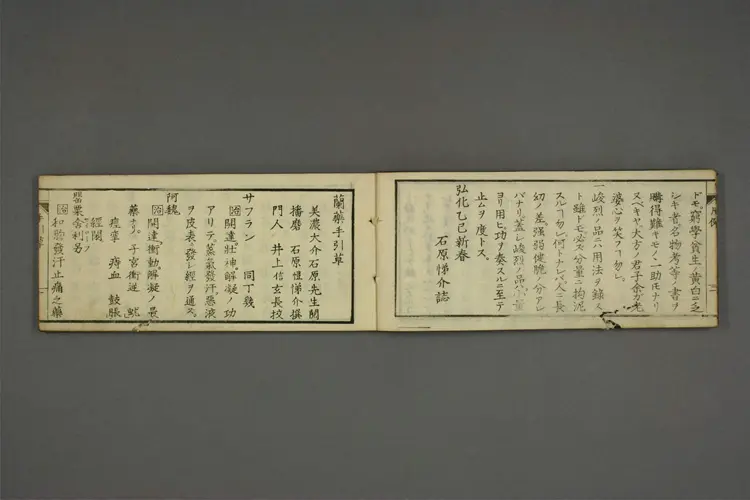 凡例
ドモ窮學貧生ノ黄白ニ乏
シキ者名物考等ノ書ヲ
購得難キモノノ一助モナリ
スベキヤ大方ノ君子余ガ老
婆心ヲ笑フヿ勿レ
一峻烈ノ品ニハ用法ヲ錄ス
ト雖ドモ必ズ分量ニ拘泥
スルヿ勿レ何トナレバ人ニ長
幼ノ差强弱健脆ノ分アレ
バナリ蓋シ峻烈ノ品ハ小量
ヨリ用ヒ功ヲ奏スルニ至テ
止ムヲ度トス
弘化乙巳新春
石原惕介誌
蘭藥手引草
美濃大介石原先生閲
播磨 石原惕介撰
門人 井上信玄長校
サフラン 同丁幾
開達壯神解凝ノ功
アリテ蒸氣發汗惡液
ヲ皮表ニ發シ經ヲ通ス
阿魏
開達衝動解凝ノ最
藥 子宮衝逆
經閉
痙攣 痔血 鼓脹
罌粟舎利別
和胞發汗止痛之藥